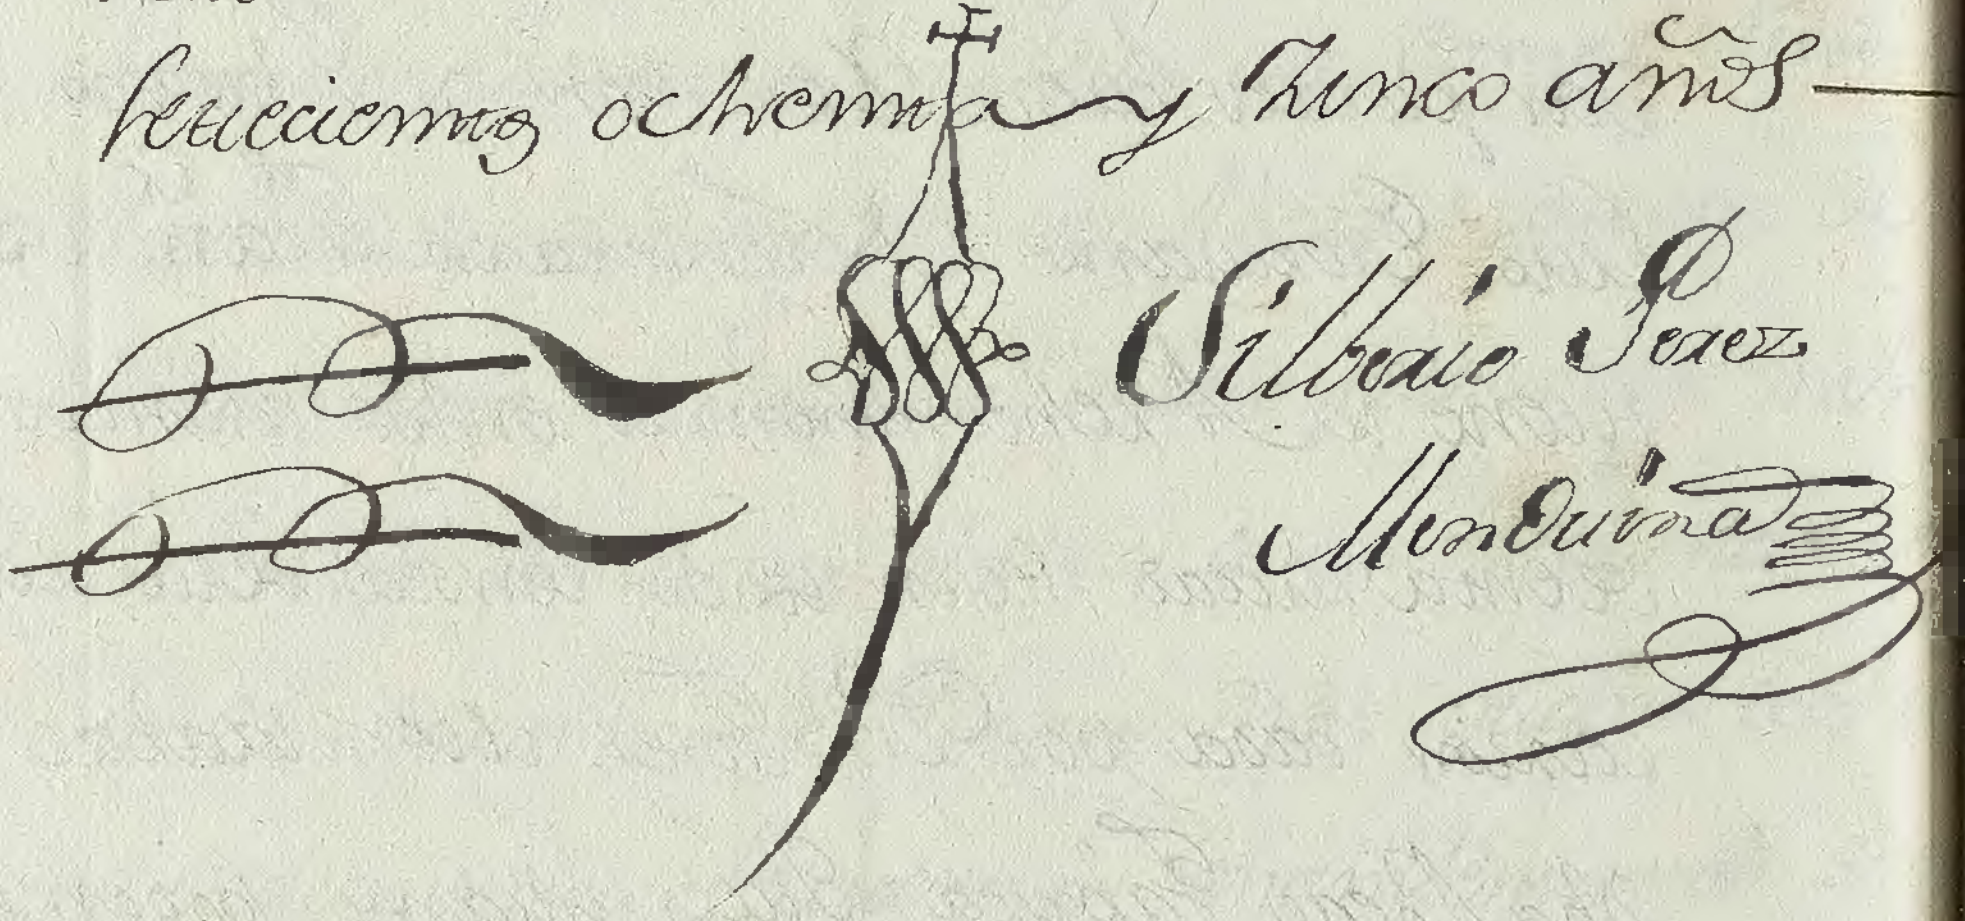 setecientos ochenta y zinco años
Silberio Perez
Menduina